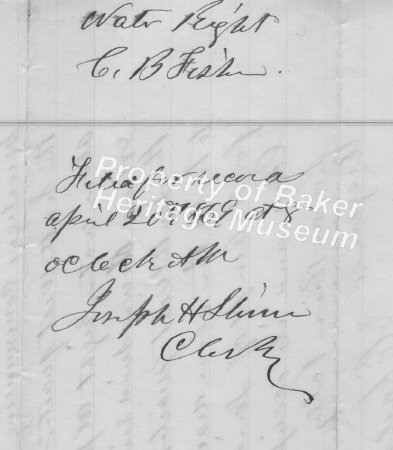 Water Right
C. B Fisher.
Filed for record
april 20 1869 at 8
oclock AM
Joseph H Shinn
Clerk
Property of Baker
Heritage Museum